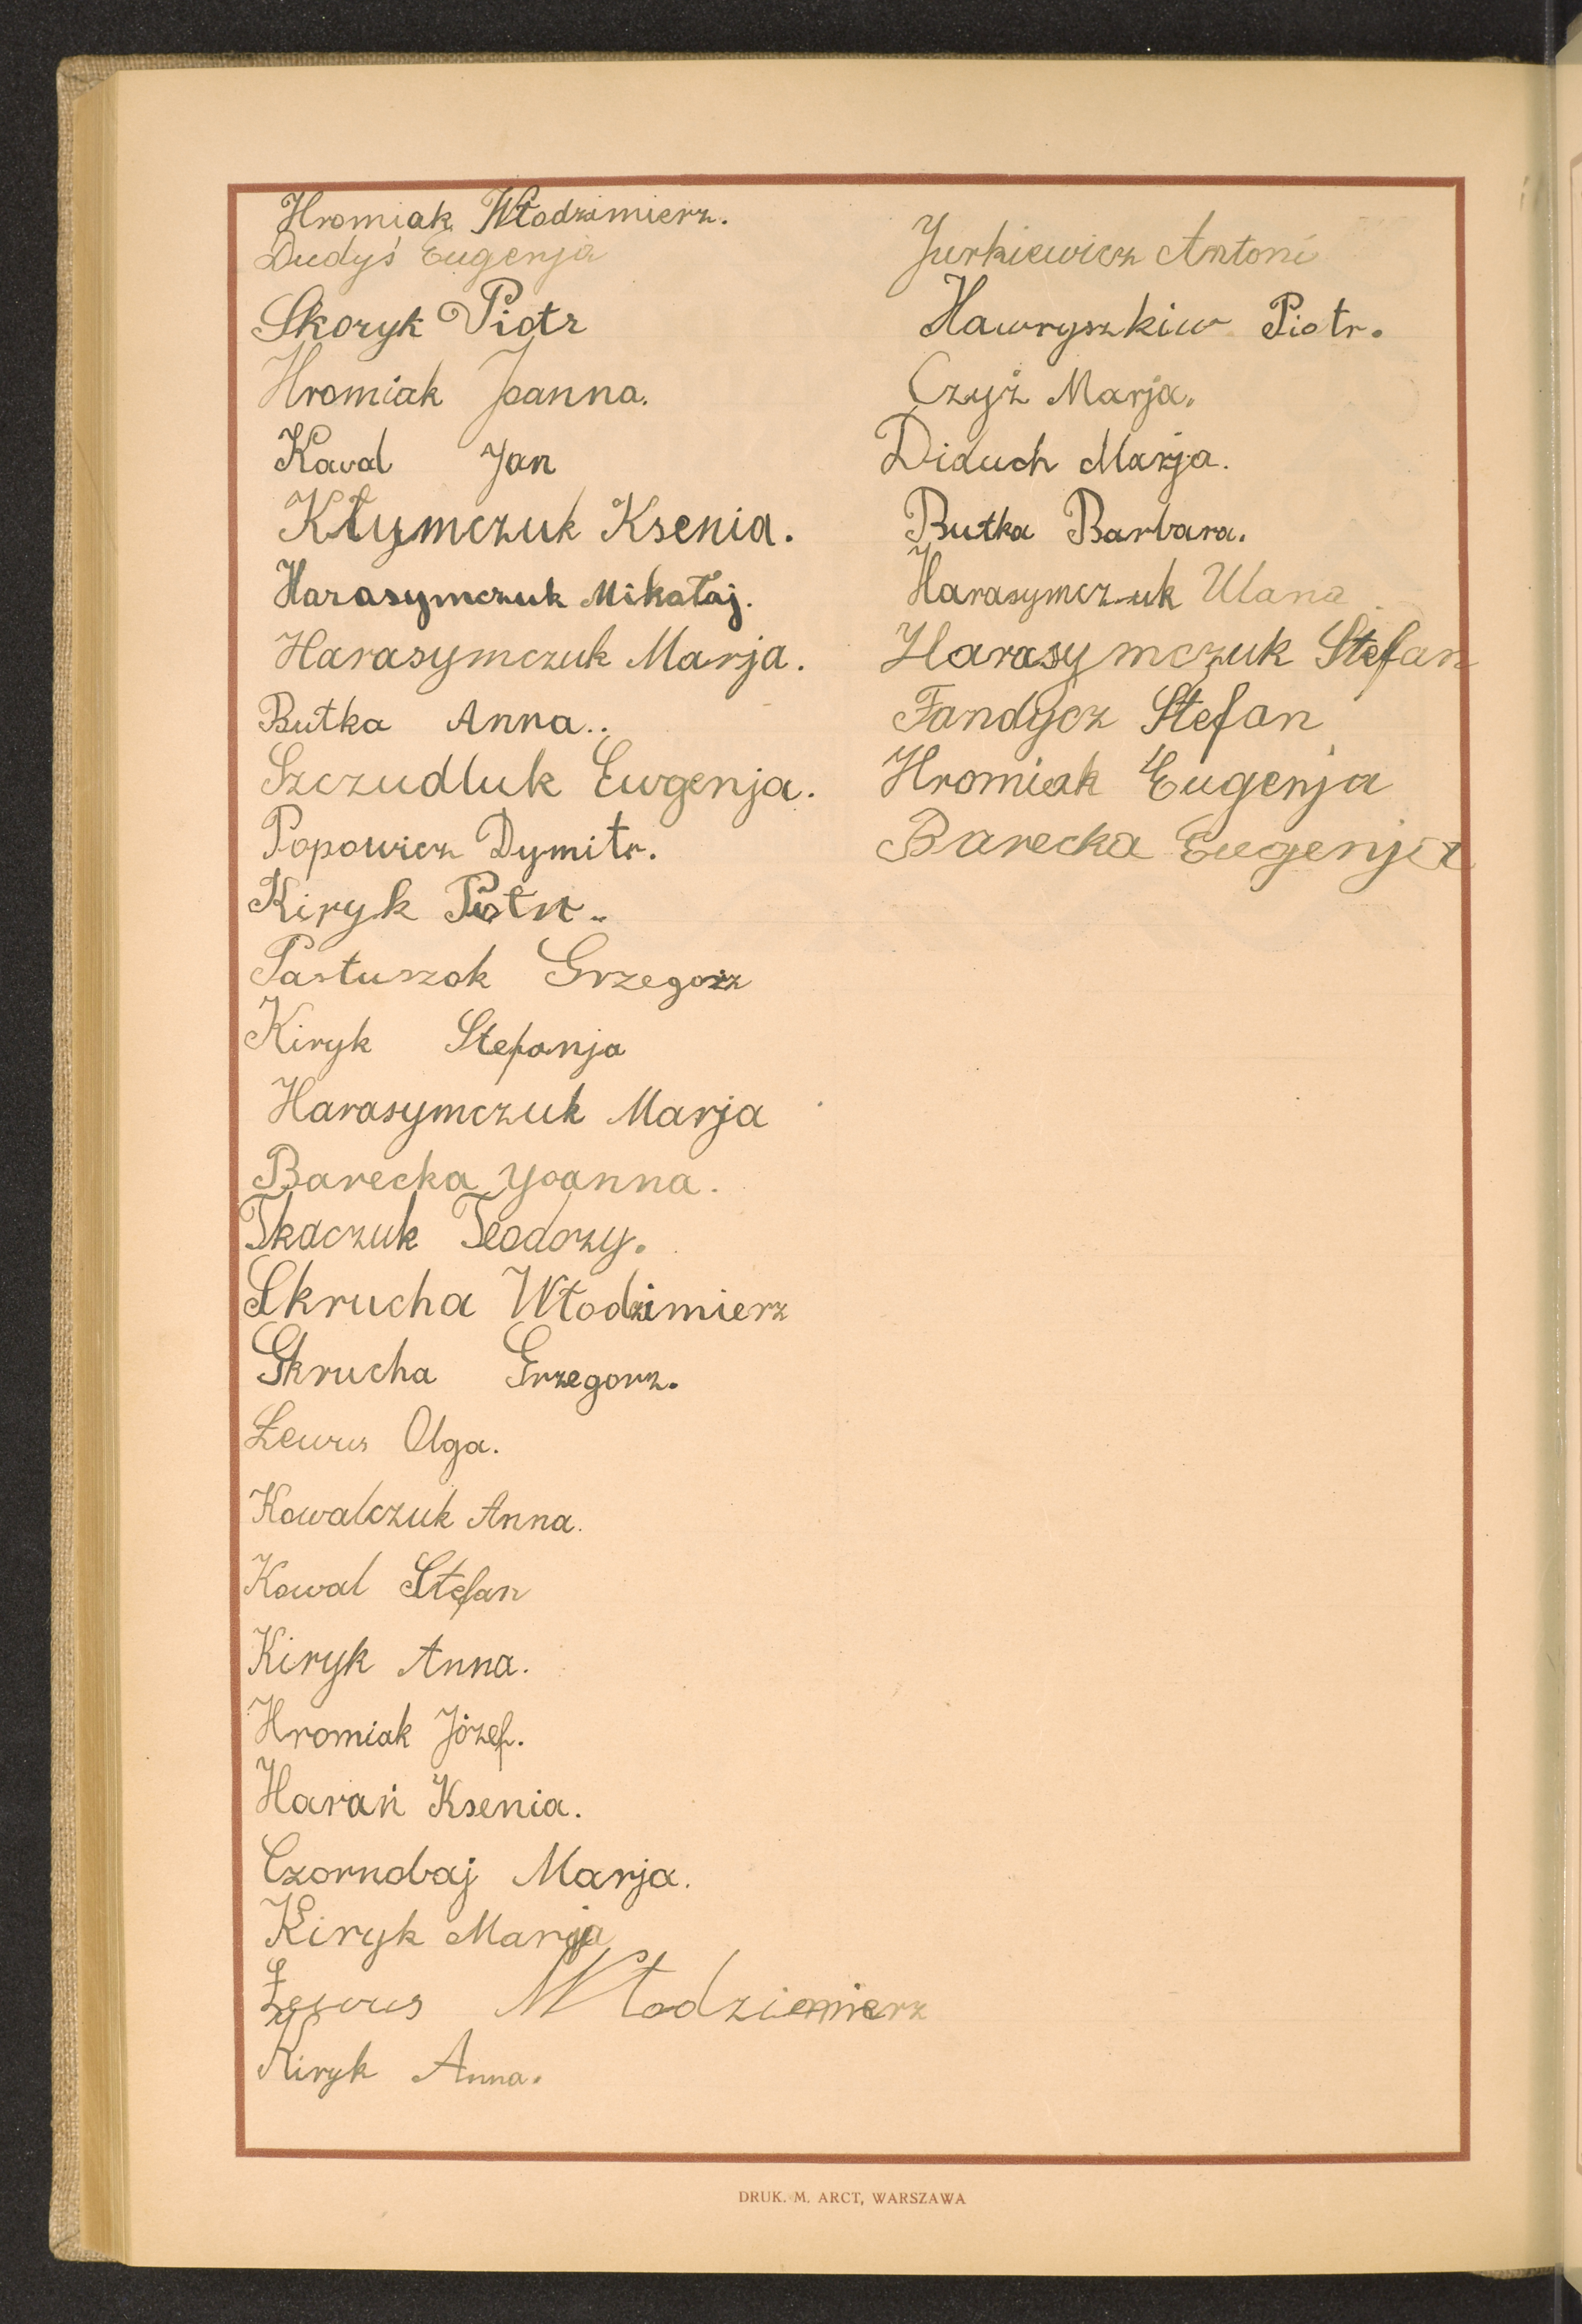 Hromiak Włodzimierz.
Dudyś Eugenja
Skoryk Piotr
Hromiak Joanna.
Kowal Jan
Kłymczuk Ksenia.
Harasymczuk Mikałaj.
Harasymczuk Marja.
Butka Anna..
Szczudluk Ewgenja.
Popowicz Dymitr.
Kiryk Piotr.
Pastuszok Grzegorz
Kiryk Stefanja
Harasymczuk Marja
Barecka Yoanna.
Tkaczuk Teodozy.
Skrucha Włodzimierz
Skrucha Grzegorz.
Łewus Olga.
Kowalczuk Anna.
Kowal Stefan
Kiryk Anna.
Hromiak Józef.
Harań Ksenia.
Czornobaj Marja.
Kiryk Marja
Łewus Włodzimierz
Kiryk Anna.
Jurkiewicz Antoni
Hawryszkiw Piotr.
Czyż Marja.
Diduch Marja.
Butka Barbara.
Harasymczuk Ulana
Harasymczuk Stefan
Fandycz Stefan
Hromiak Eugenja
Barecka Eugenja
DRUK. M. ARCT, WARSZAWA